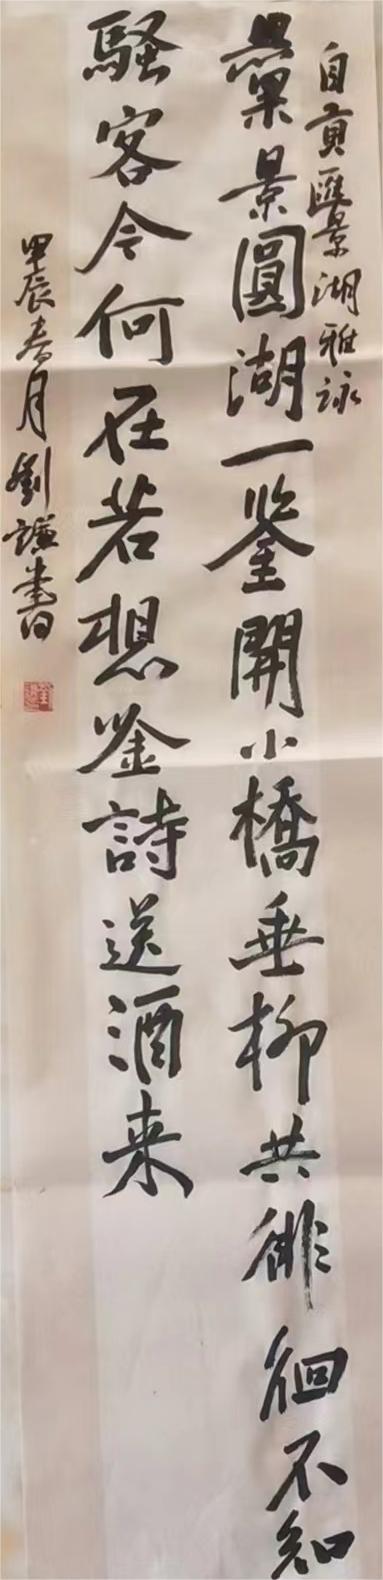 自貢匯景湖雅詠
景圓湖一鉴開小橋垂柳共徘徊不知
騷客今何在若想詩送酒来
甲辰春月劉謙書